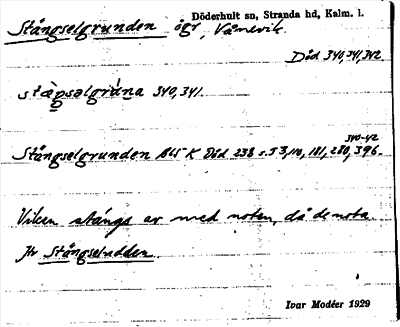 Döderhult sn, Stranda hd, Kalm. l.
Stångselgrunden ögr, Våmevik.
Död 340,341,342.
340,341.
340-42
Stångselgrunden Död 238 s. 53, 110, 181, 280, 396.
Viken stängs av med noten, då de nota
Jfr Stångseludden.
Ivar Modéer 1929